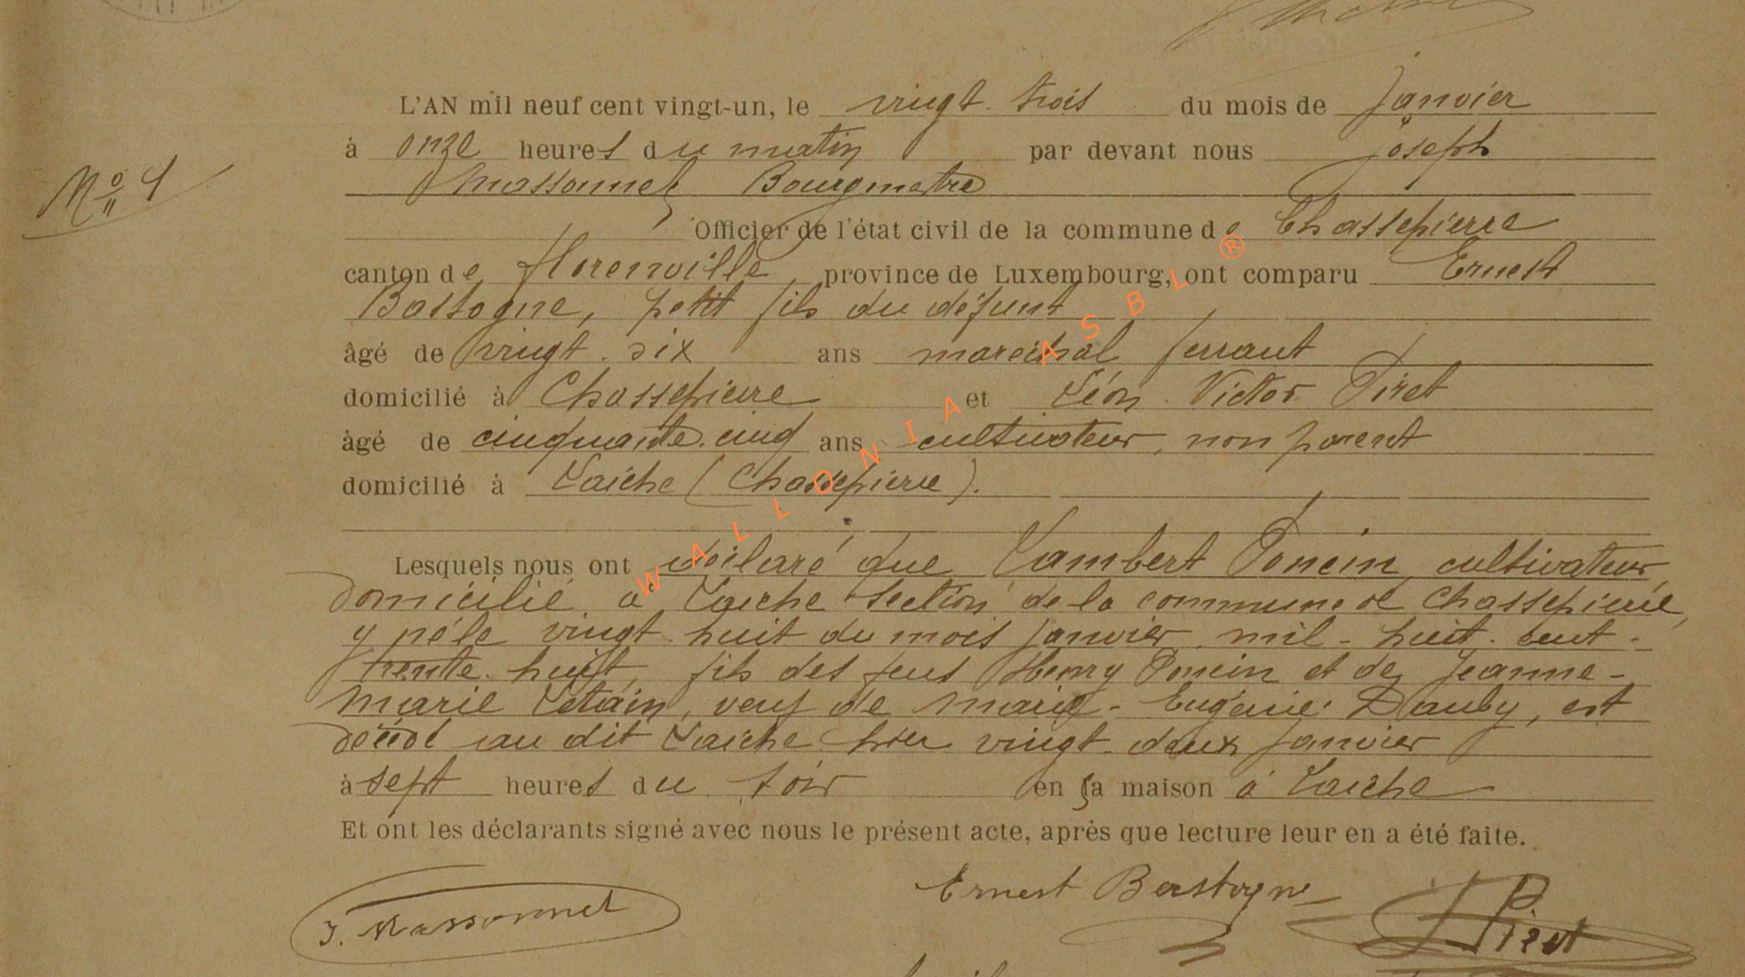 L'AN mil neuf cent vingt-un, le vingt-trois du mois de Janvier
à onze heures du matin par devant nous Joseph
Nº 1
Massonnet Bourgmestre
Officier de l'état civil de la commune de Chassepierre
canton de Florenville province de Luxembourg, ont comparu Ernest
Bastogne, petit fils du défunt
âgé de vingt-six ans maréchal ferrant
domicilié à Chassepierre et Léon-Victor Piret
âgé de cinquante-cinq ans cultivateur, non parent
domicilié à Laiche (Chassepierre).
Lesquels nous ont déclaré que Lambert Poncin, cultivateur,
domicilié à Laiche section de la commune de Chassepierre,
y né le vingt-huit du mois Janvier mil-huit-cent-
trente-huit, fils des feus Henry Poncin et de Jeanne-
Marie Letain, veuf de Marie-Eugénie Dauby, est
décédé au dit Laiche hier vingt-deux Janvier
à sept heures du soir en sa maison à Laiche
Et ont les déclarants signé avec nous le présent acte, après que lecture leur en a été faite.
Ernest Bastogne
J. Massonnet
L Piret
WALLONIA ASBL ®